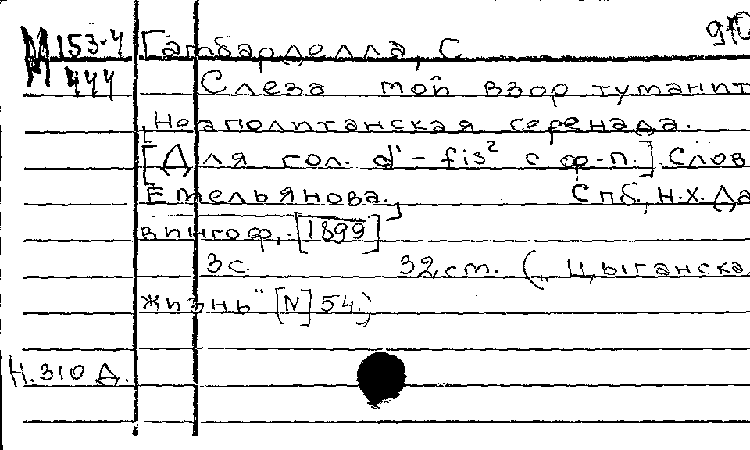 М 153-4 Гамбарделла, С 910
444 Слеза мой взор туманит
Неаполитанская серенада.
[Для гол. d' - fis² с ф-п.] Слов
Емельянова. Спб, Н.Х. Да
вингоф, [1899]
3с 32 cm. („Цыганска
жизнь" [N] 54.)
Н. 310 Д.